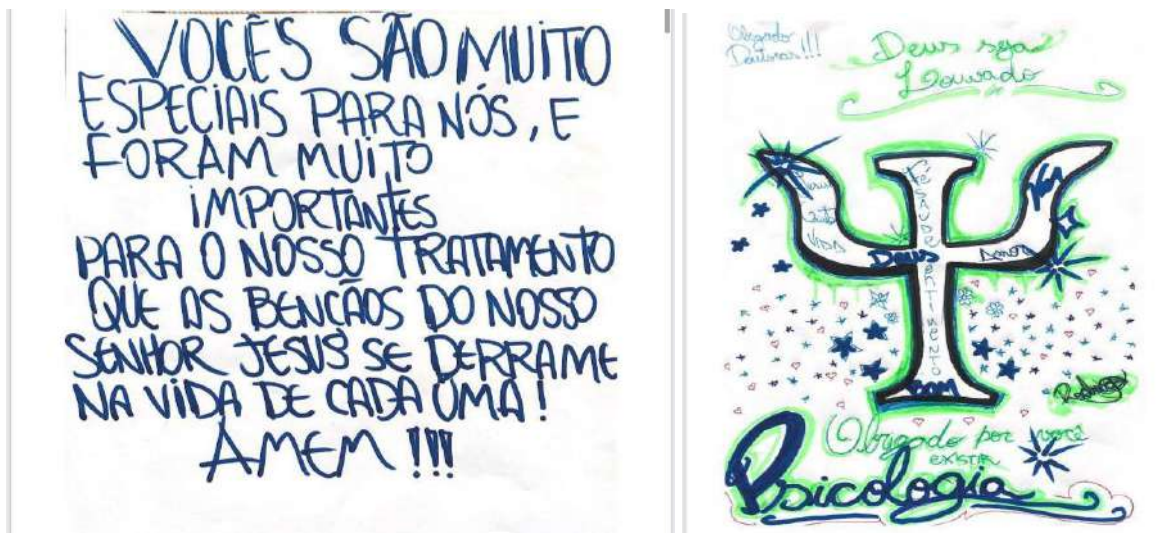 VOCÊS SÃO MUITO
ESPECIAIS PARA NÓS, E
FORAM MUITO
IMPORTANTES
PARA O NOSSO TRATAMENTO
QUE AS BENCÃOS DO NOSSO
SENHOR JESUS SE DERRAME
NA VIDA DE CADA UMA!
AMEM !!!
Obrigado
Doutoras!!!
Deus seja
Louvado
Fé
Saude
Sentimento
Vida
Deus
Amor
BOM
Obrigado por você
EXISTIR
Psicologia